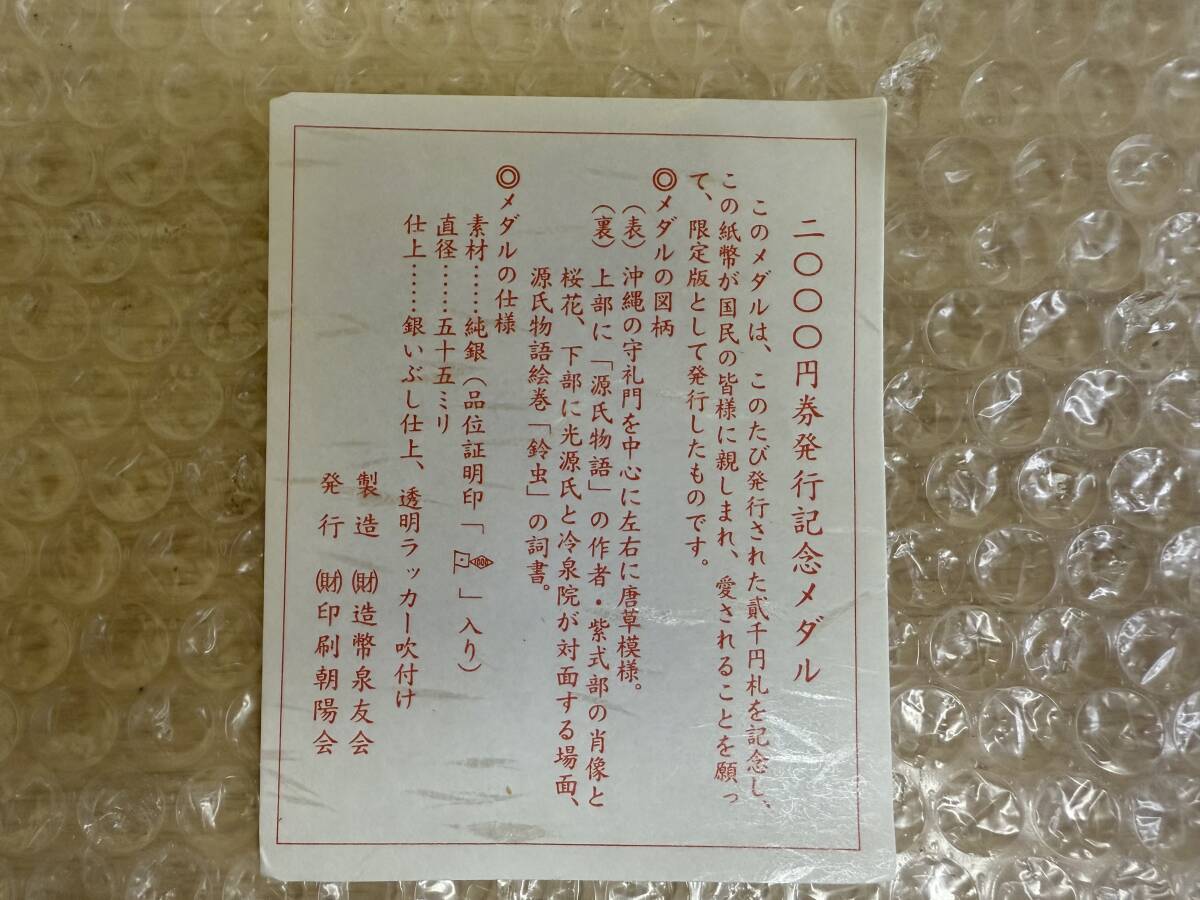 二〇〇〇円券発行記念メダル
このメダルは、このたび発行された貳千円札を記念し、
この紙幣が国民の皆様に親しまれ、愛されることを願っ
て、限定版として発行したものです。
◎メダルの図柄
(表) 沖縄の守礼門を中心に左右に唐草模様。
(裏) 上部に「源氏物語」の作者・紫式部の肖像と
桜花、下部に光源氏と冷泉院が対面する場面、
源氏物語絵巻「鈴虫」の詞書。
◎メダルの仕様
素材……純銀(品位証明印「 1000 」入り)
直径……五十五ミリ
仕上……銀いぶし仕上、透明ラッカー吹付け
製造 ㈶造幣泉友会
発行 ㈶印刷朝陽会